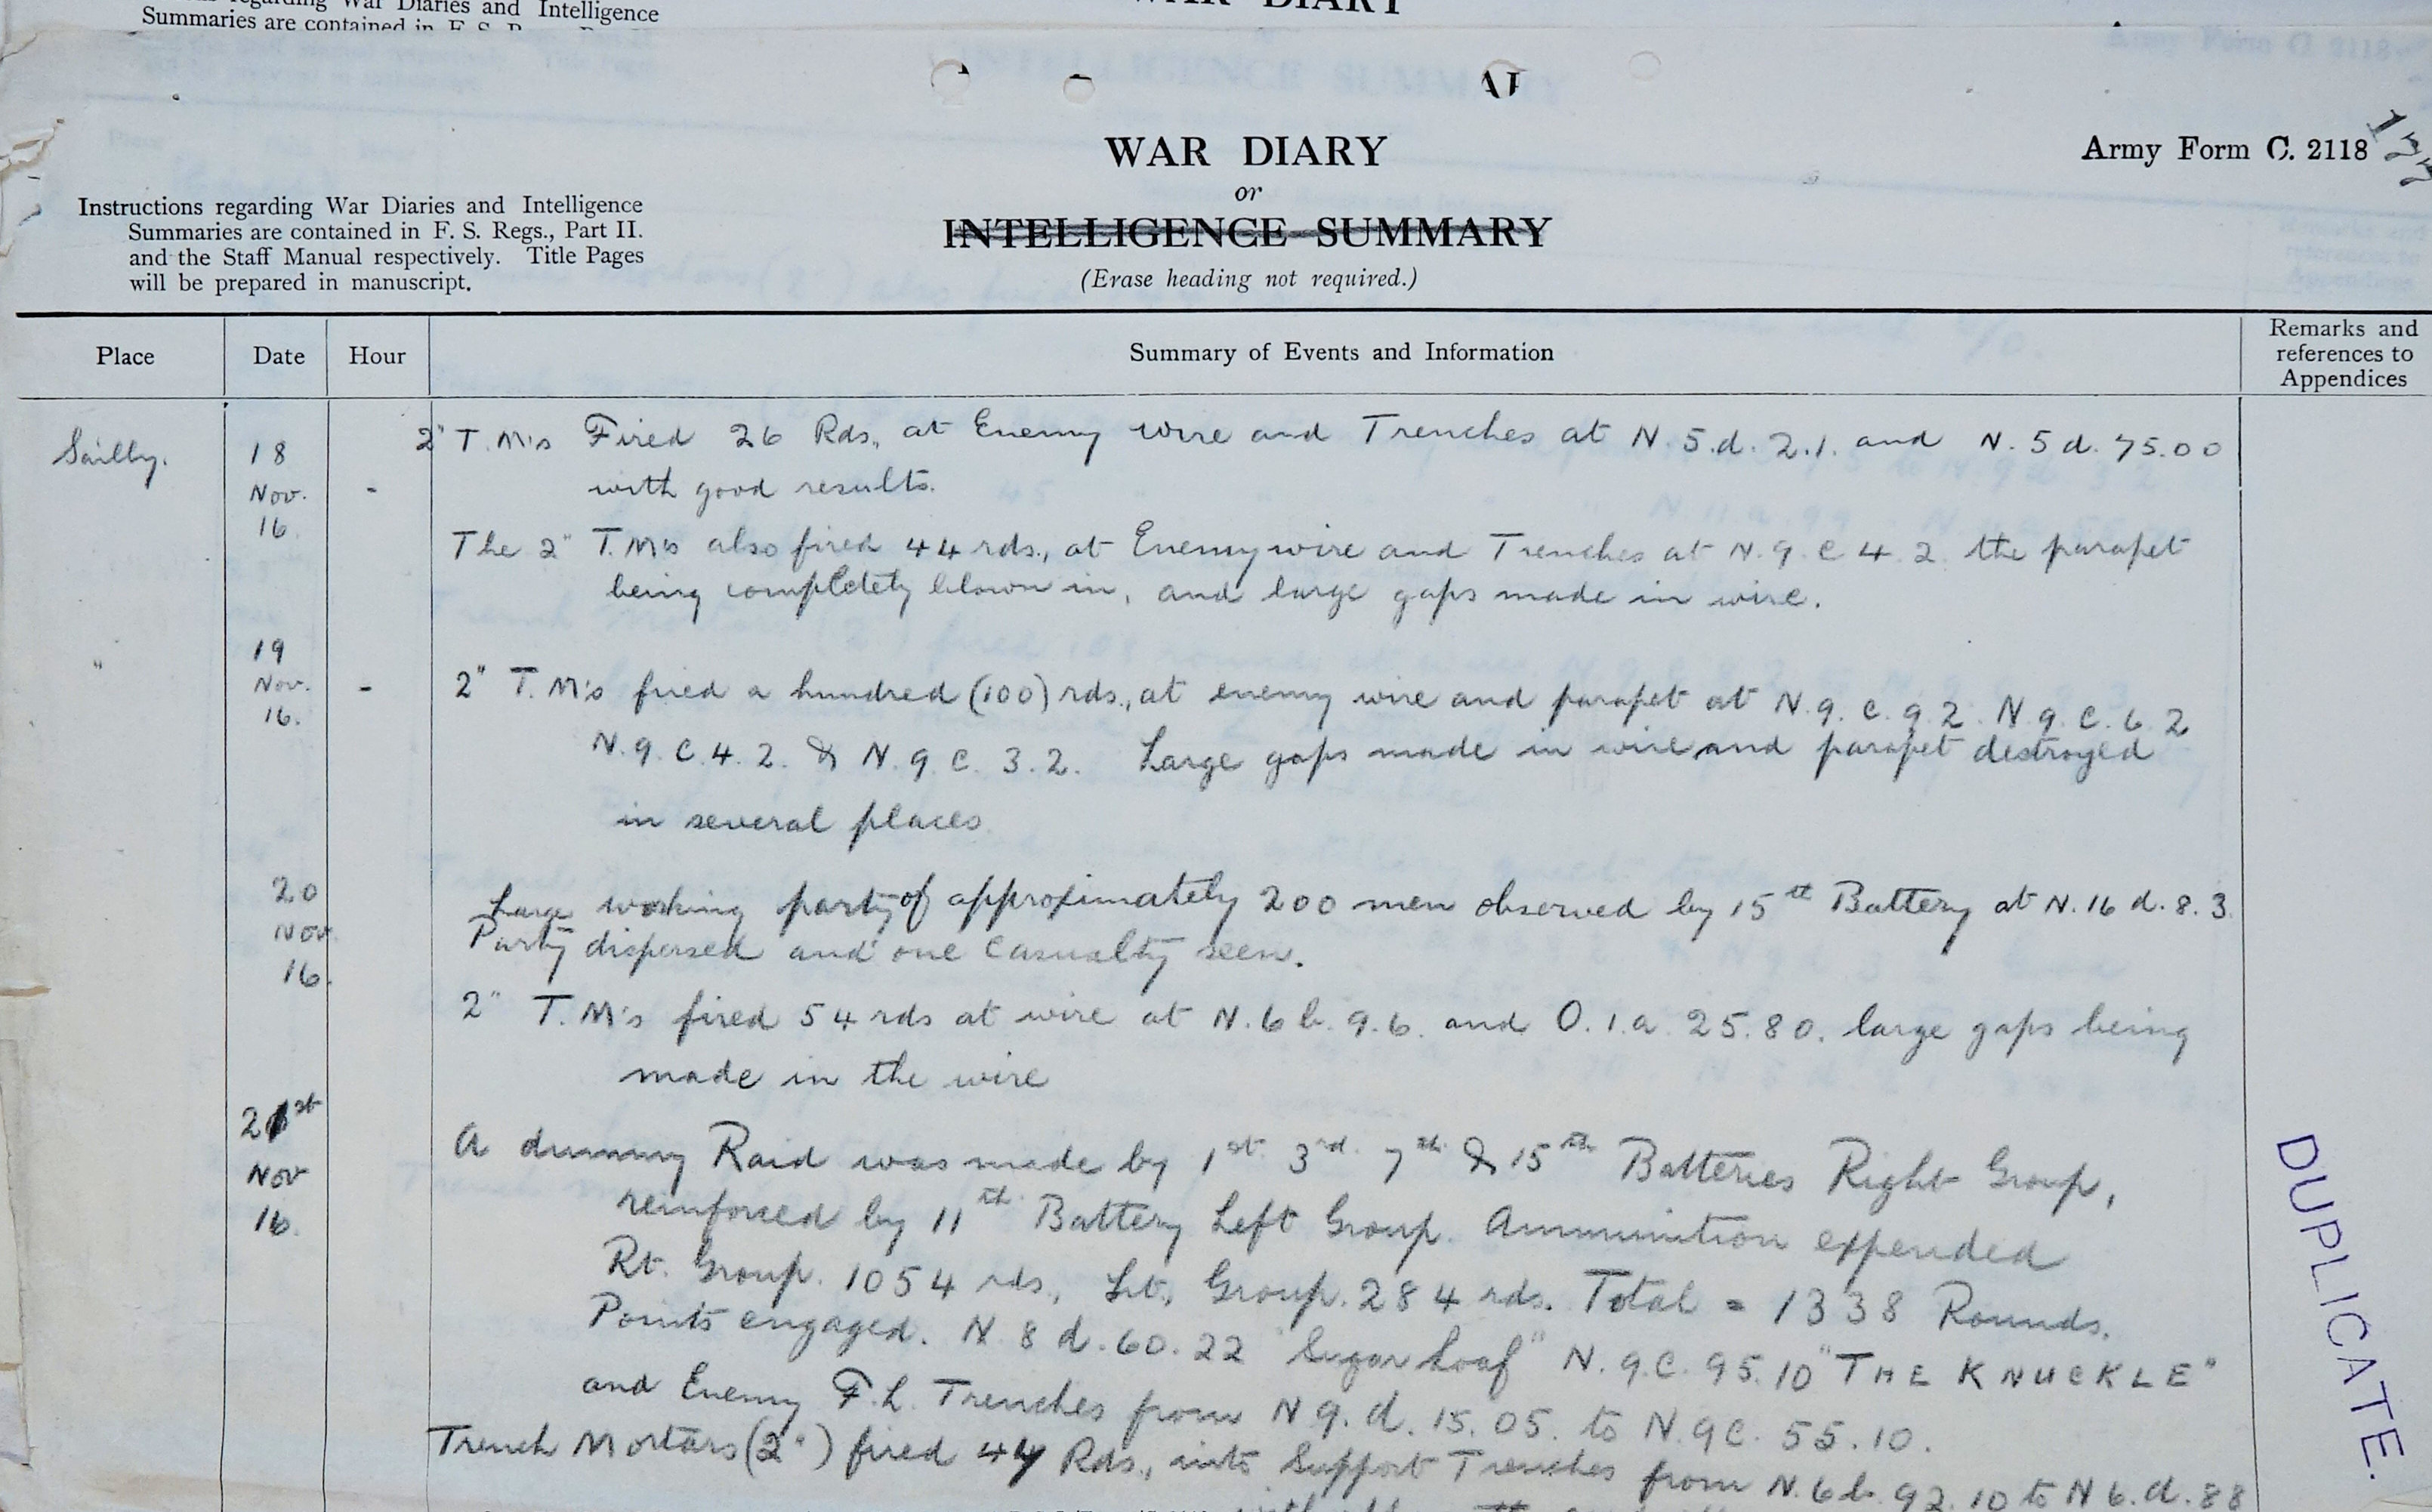 regarding War Diaries and Intelligence
Summaries are contained in F. S. R
WAR DIARY
WAR DIARY
or
INTELLIGENCE SUMMARY
(Erase heading not required.)
Army Form C. 2118
Instructions regarding War Diaries and Intelligence
Summaries are contained in F. S. Regs., Part II.
and the Staff Manual respectively. Title Pages
will be prepared in manuscript.
Place Date Hour Summary of Events and Information Remarks and references to Appendices
Sailly. 18 Nov. 16 - 2" T.M's Fired 26 Rds, at Enemy wire and Trenches at N.5.d.2.1. and N.5d.75.00
with good results.
The 2" T.M's also fired 44 rds., at Enemy wire and Trenches at N.9.C 4.2 the parapet
being completely blown in, and large gaps made in wire.
" 19 Nov. 16. - 2" T.M's fired a hundred (100) rds., at enemy wire and parapet at N.9.C.9.2. N.9.C.6.2
N.9.C.4.2. & N.9.C.3.2. Large gaps made in wire and parapet destroyed
in several places
20 Nov. 16. Large working party of approximately 200 men observed by 15th Battery at N.16 d.8.3.
Party dispersed and one casualty seen.
2" T.M's fired 54 rds at wire at N.6 b.9.6. and O.1.a 25.80. large gaps being
made in the wire
21st Nov 16. A dummy Raid was made by 1st 3rd. 7th & 15th Batteries Right Group,
reinforced by 11th Battery Left Group. Ammunition expended
Rt. Group. 1054 rds., Lt. Group. 284 rds. Total = 1338 Rounds.
Points engaged. N.8 d.60.22 "Sugar Loaf" N.9.C.95.10 "THE KNUCKLE"
and Enemy F.L. Trenches from N 9.d.15.05. to N.9C.55.10.
Trench Mortars (2") fired 44 Rds., into Support Trenches from N.6 b.92.10 to N 6.d.88
DUPLICATE.